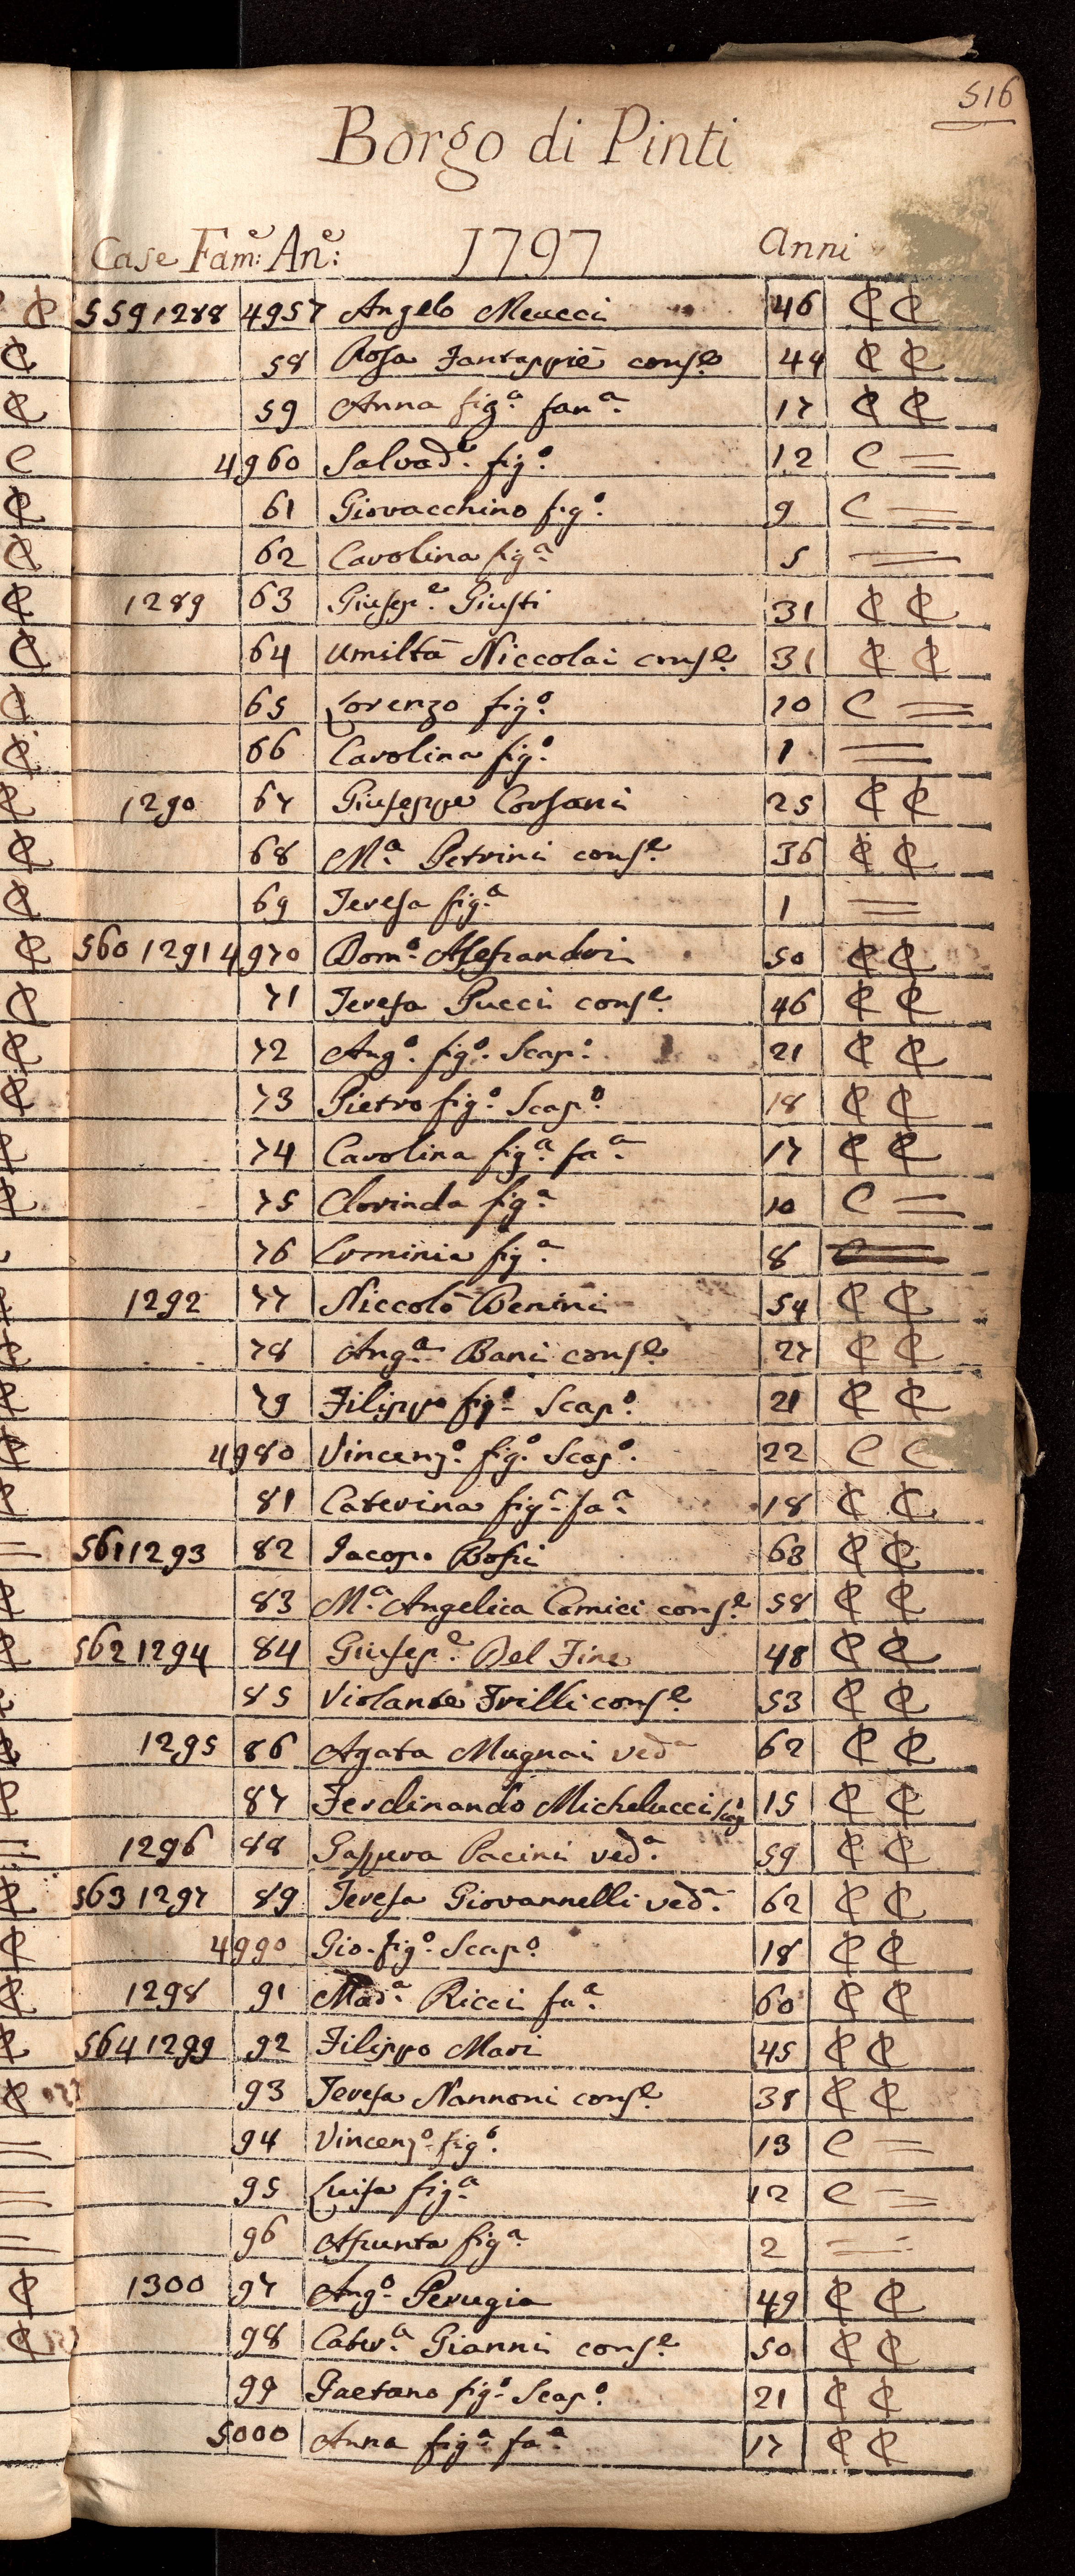 516
Borgo di Pinti
Case Fam:e An:e 1797 Anni
559 1288 4957 Angelo Meucci 46 ₵ ₵
58 Rosa Fantappiè cons.e 44 ₵ ₵
59 Anna fig.a fan.a 17 ₵ ₵
4960 Salvad.e fig.o 12 C =
61 Giovacchino fig.o 9 C =
62 Carolina fig.a 5 =
1289 63 Giusep.e Giusti 31 ₵ ₵
64 Umiltà Niccolai cons.e 31 ₵ ₵
65 Lorenzo fig.o 10 C =
66 Carolina fig.o 1 =
1290 67 Giuseppe Corsani 25 ₵ ₵
68 M.a Petrini cons.e 36 ₵ ₵
69 Teresa fig.a 1 =
560 1291 4970 Dom.o Alessandri 50 ₵ ₵
71 Teresa Pucci cons.e 46 ₵ ₵
72 Ang.o fig.o Scap.o 21 ₵ ₵
73 Pietro fig.o Scap.o 18 ₵ ₵
74 Carolina fig.a fa.a 17 ₵ ₵
75 Clorinda fig.a 10 C =
76 Erminia fig.a 8
1292 77 Niccolò Benini 54 ₵ ₵
78 Ang.a Bani cons.e 27 ₵ ₵
79 Filippo fig.o Scap.o 21 ₵ ₵
4980 Vincenz.o fig.o Scap.o 22 C C
81 Caterina fig.a fa.a 18 ₵ ₵
561 1293 82 Jacopo Bossi 63 ₵ ₵
83 M.a Angelica Comici cons.e 58 ₵ ₵
562 1294 84 Giusep.e Del Fine 48 ₵ ₵
85 Violante Frilli cons.e 53 ₵ ₵
1295 86 Agata Mugnai ved.a 62 ₵ ₵
87 Ferdinando Michelucci 15 ₵ ₵
1296 88 Gaspera Pacini ved.a 59 ₵ ₵
563 1297 89 Teresa Giovannelli ved.a 62 ₵ ₵
4990 Gio. fig.o Scap.o 18 ₵ ₵
1298 91 Mad.a Ricci fa.a 60 ₵ ₵
564 1299 92 Filippo Mari 45 ₵ ₵
93 Teresa Nannoni cons.e 38 ₵ ₵
94 Vincenz.o fig.o 13 C =
95 Luisa fig.a 12 C =
96 Assunta fig.a 2 =
1300 97 Ang.o Perugia 49 ₵ ₵
98 Cater.a Gianni cons.e 50 ₵ ₵
99 Gaetano fig.o Scap.o 21 ₵ ₵
5000 Anna fig.a fa.a 17 ₵ ₵